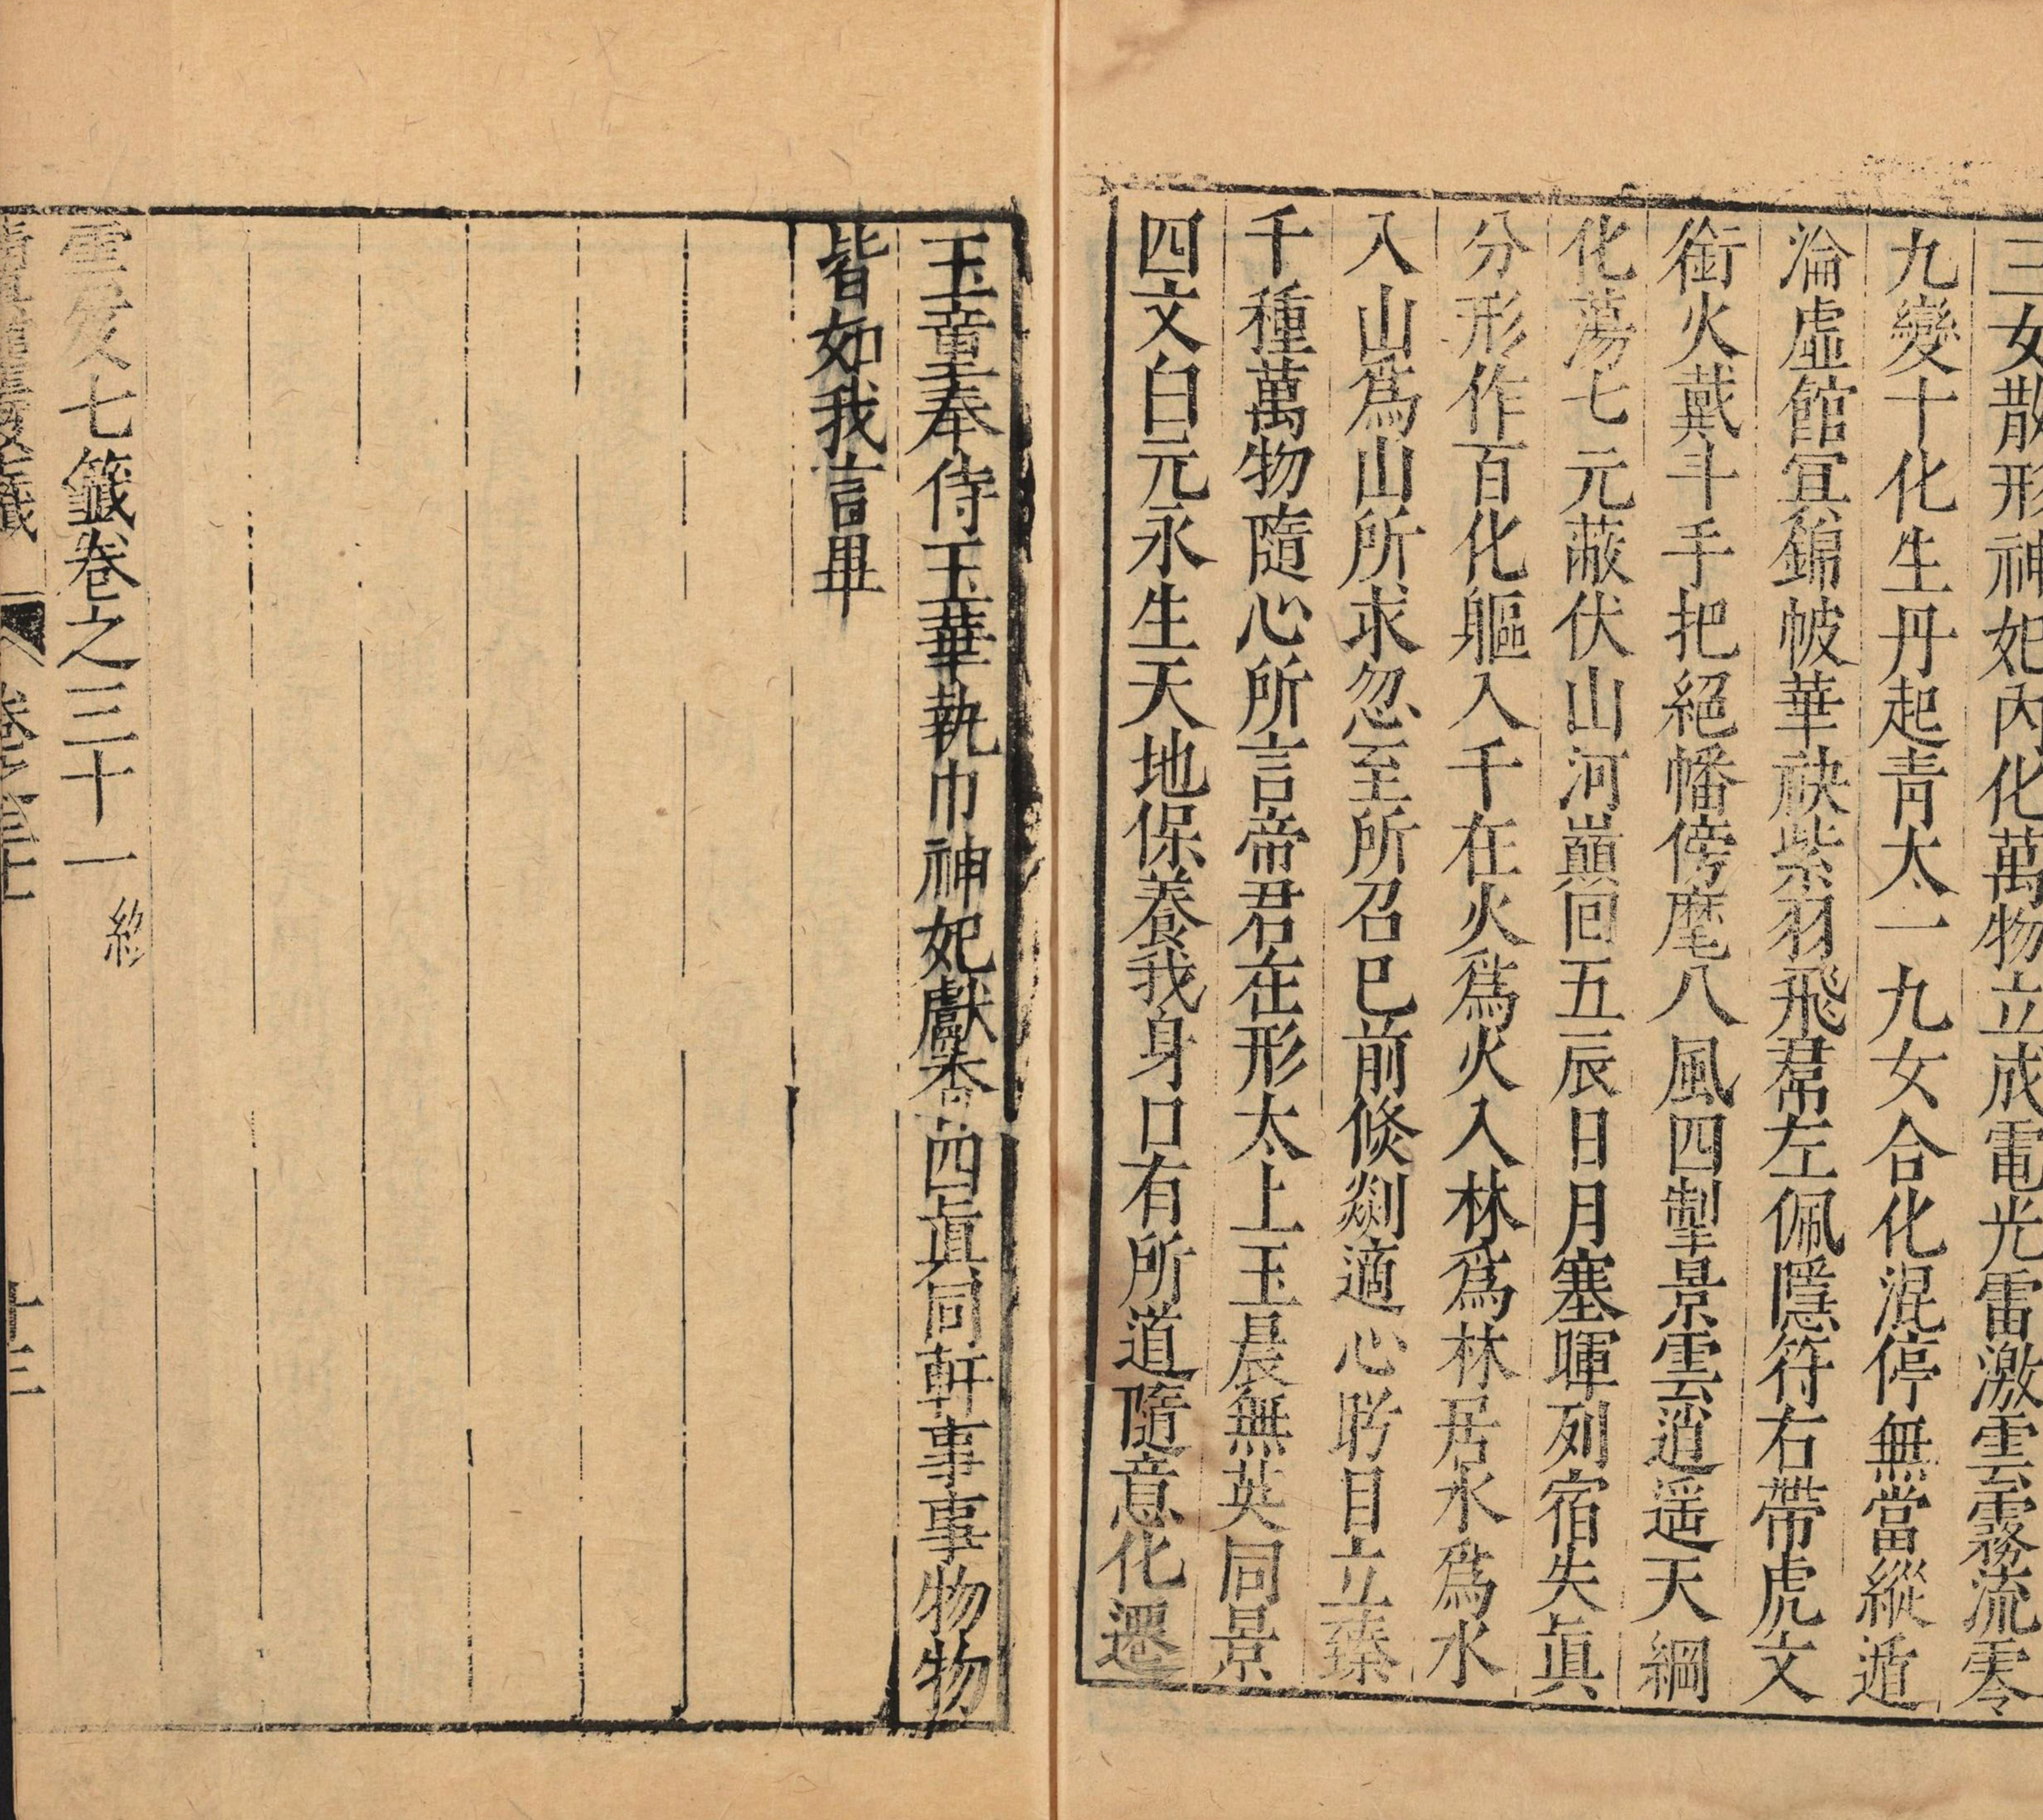 三女散形神妃内化萬物立成電光雷激雲霧流零
九變十化生丹起青太一九女合化混停無當縱遁
淪虛館冥錦帔華袂紫羽飛帬左佩隱符右帶虎文
銜火戴斗手把絕幡傍麾八風四掣景雲逍遥天綱
化蕩七元蔽伏山河巔回五辰日月塞暉列宿失眞
分形作百化軀入千在火爲火入林爲林居水爲水
入山爲山所求忽至所召巳前倐剡適心盻目立臻
千種萬物隨心所言帝君在形太上玉晨無英同景
四文白元永生天地保養我身口有所道隨意化遷
玉童奉侍玉華執巾神妃獻香四眞同軒事事物物
皆如我言畢
雲笈七籤卷之三十一 終
卷之三十一
十三